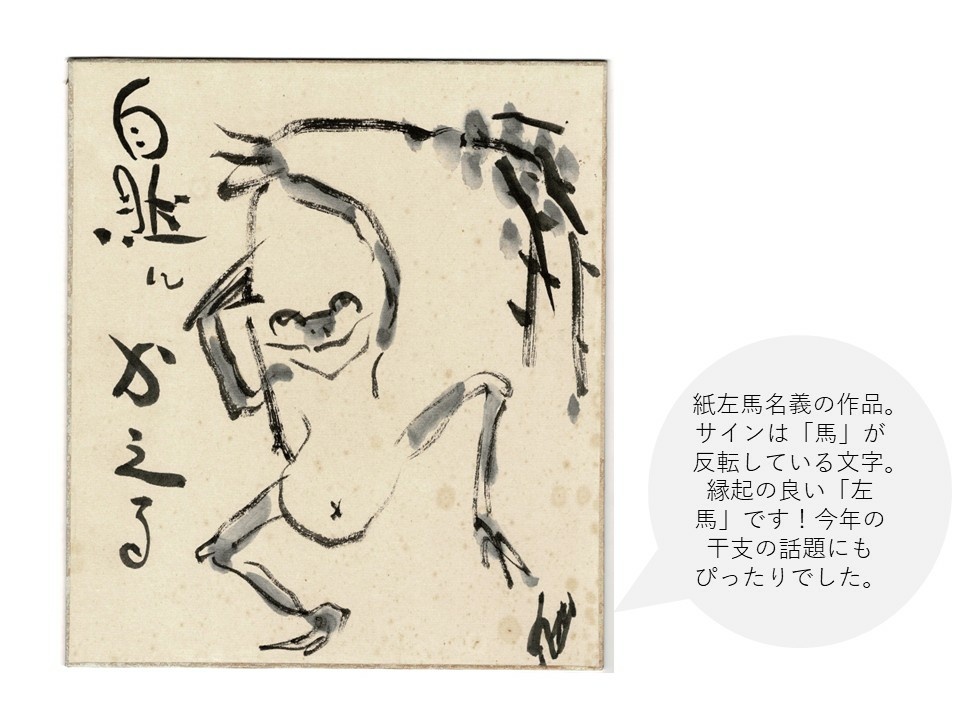 自然に
かえる
紙左馬名義の作品。
サインは「馬」が
反転している文字。
縁起の良い「左
馬」です！今年の
干支の話題にも
ぴったりでした。